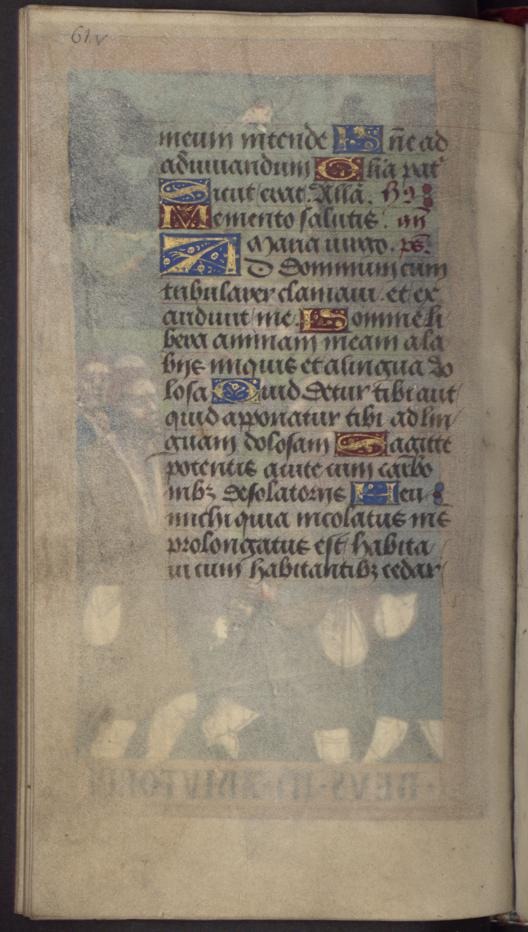 61v
meum intende Dñe ad
adiuuandum Glia pat'
Sicut erat. Allã. hȳ9
Memento salutis. añ
Maria uirgo. ps.
AD dominum cum
tribularer clamaui et ex
audiuit me. Domine li
bera animam meam a la
bijs iniquis et a lingua do
losa Quid detur tibi aut
quid apponatur tibi ad lin
guam dolosam Sagitte
potentis acute cum carbo
nibꝫ desolatorijs Heu
michi quia incolatus me
prolongatus est habita
ui cum habitantibꝫ cedar
DEVS IN ADIVTORI